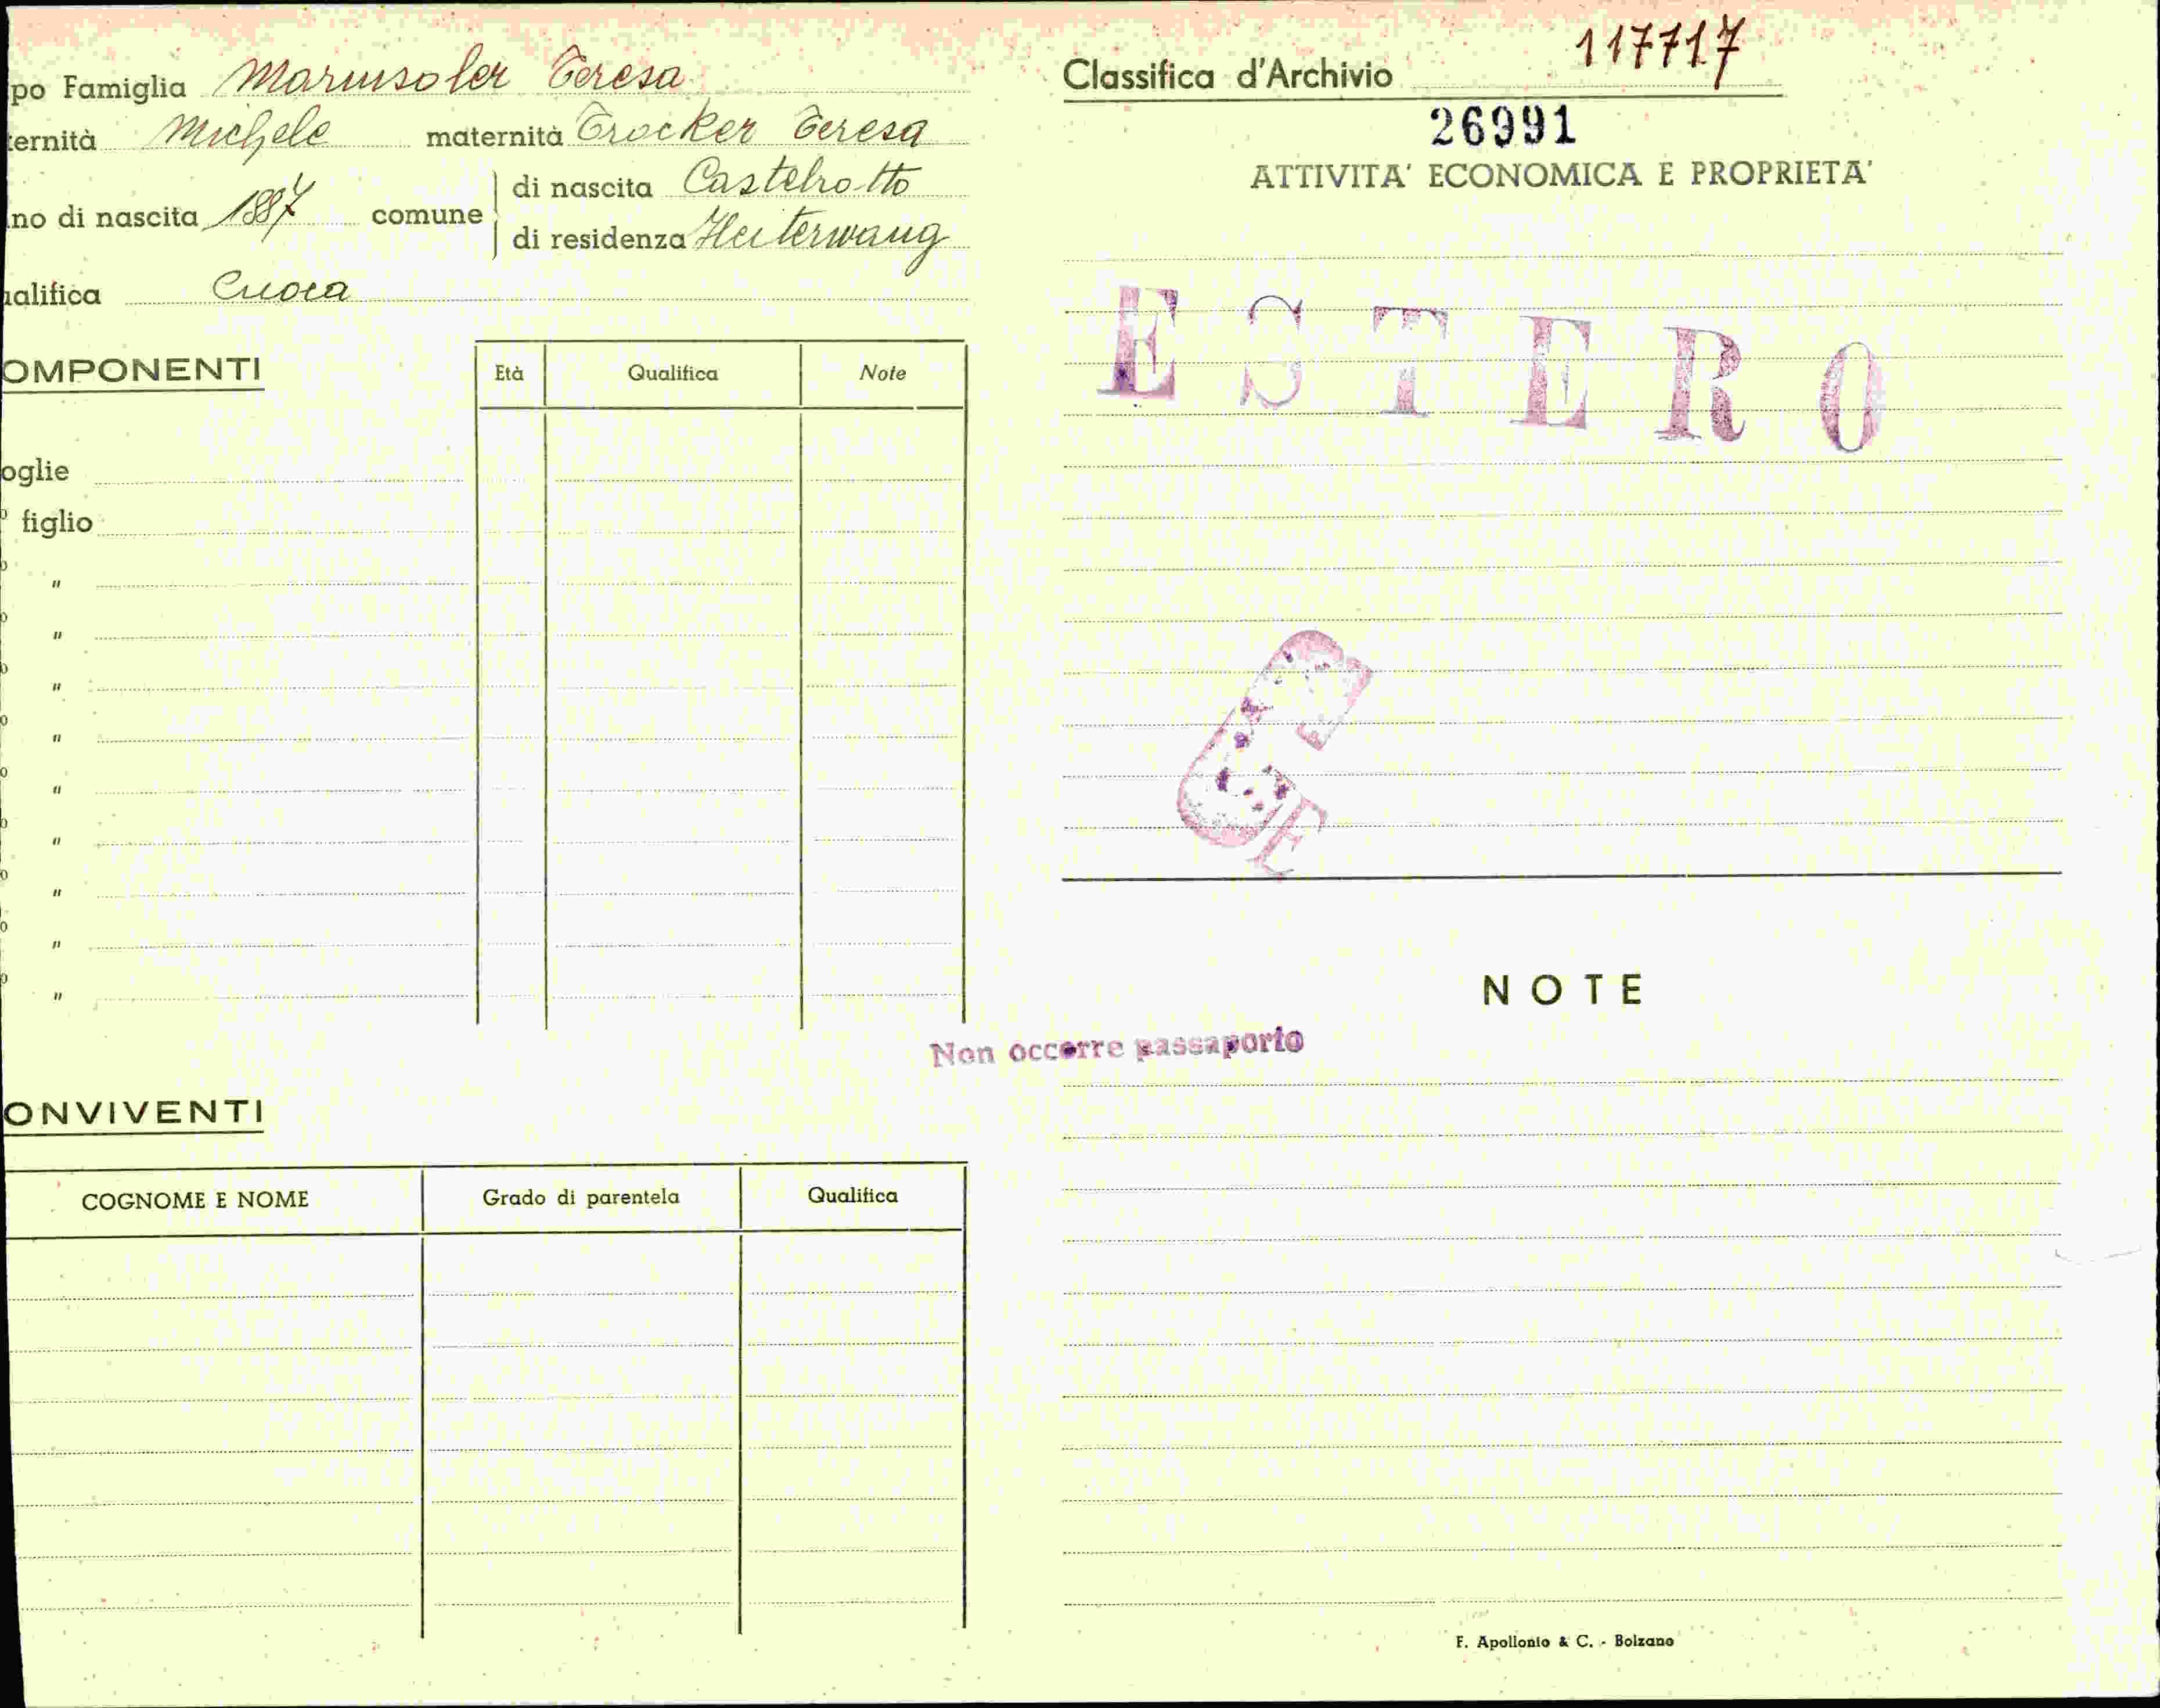 po Famiglia Marmsoler Teresa
ternità Michele maternità Trocker Teresa
no di nascita 1887 comune di nascita Castelrotto
di residenza Heiterwang
ualifica Cuoca
OMPONENTI Età Qualifica Note
oglie
º figlio
º "
º "
º "
º "
º "
º "
º "
º "
º "
ONVIVENTI
COGNOME E NOME Grado di parentela Qualifica
Classifica d'Archivio 117717
26991
ATTIVITA' ECONOMICA E PROPRIETA'
ESTERO
NOTE
Non occorre passaporto
F. Apollonio & C. - Bolzano